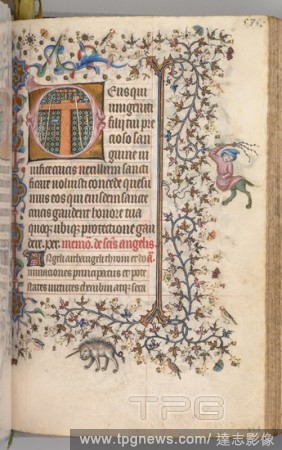 575
Deus qui
unigeniti
filii tui pre
cioso san
guine vi
vifice crucis vexillum sancti
ficare voluisti concede quesu
mus eos qui eiusdem sancte
crucis gaudent honore tua
quoque ubique protectione gau
dere. per. memō. de scīs angelis.
Angeli archangeli throni et do
minationes principatus et pote
states virtutes cherubin atque sera
TPG
www.tpgnews.com/ 達志影像